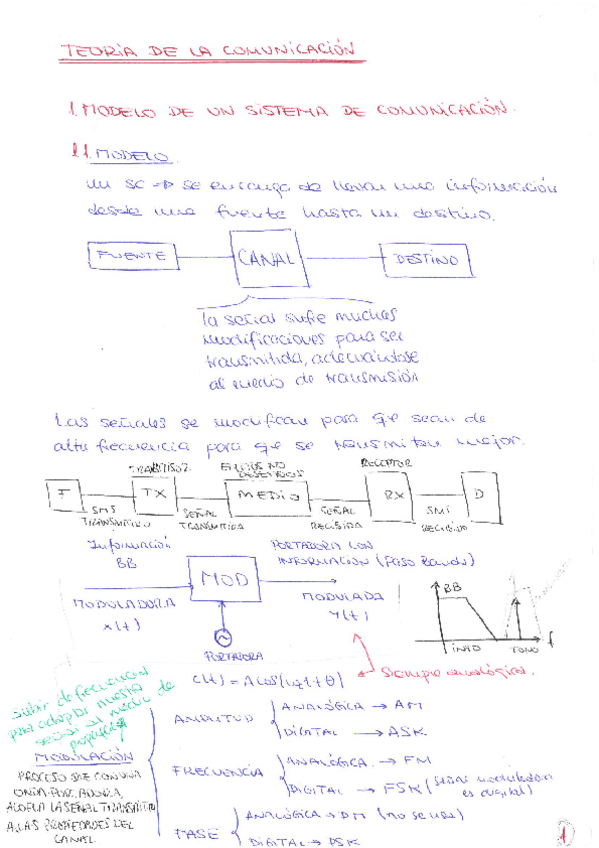 TEORÍA DE LA COMUNICACIÓN
1. MODELO DE UN SISTEMA DE COMUNICACIÓN.
1.1. MODELO.
un SC → se encarga de llevar una información
desde una fuente hasta un destino.
FUENTE CANAL DESTINO
la señal sufre muchas
modificaciones para ser
transmitida, adecuándose
al medio de transmisión
Las señales se modifican para qe sean de
alta frecuencia para qe se transmiten mejor.
TRANSMISOR EFECTOS NO DESEADOS RECEPTOR
F TX MEDIO RX D
SMS TRANSMITIDO SEÑAL TRANSMITIDA SEÑAL RECIBIDA SMS RECIBIDO
Información
BB
MOD
PORTADORA CON
INFORMACIÓN (Paso Banda)
MODULADORA
x(t)
MODULADA
y(t)
PORTADORA
BB
INFO TONO f
Siempre analógica.
subir de frecuencia
para adaptar nuestra
señal al medio de
propagación
MODULACIÓN
PROCESO QUE CON UNA
ONDA PORTADORA,
ADECUA LA SEÑAL TRANSMITIDA
A LAS PROPIEDADES DEL
CANAL.
AMPLITUD
ANALÓGICA → AM
DIGITAL → ASK
FRECUENCIA
ANALÓGICA → FM
DIGITAL → FSK (señal moduladora
es digital)
FASE
ANALÓGICA → PM (no se usa)
DIGITAL → PSK
1